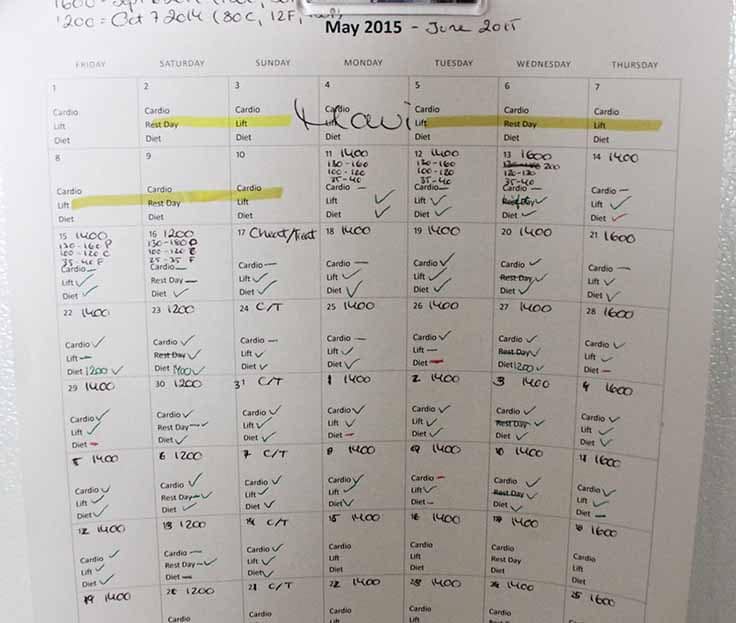 1200 = Oct 7 2014 (80C, 12F,
May 2015 - June 2015
FRIDAY SATURDAY SUNDAY MONDAY TUESDAY WEDNESDAY THURSDAY
1 2 3 4 5 6 7
Cardio Cardio Cardio Cardio Cardio Cardio Cardio
Lift Rest Day Lift Lift Lift Rest Day Lift
Diet Diet Diet Diet Diet Diet Diet
8 9 10 11 1400 12 1400 13 1600 14 1400
130-160 130-160 200
100-120 100-120 120-130
35-40 35-40 35-40
Cardio Cardio Cardio Cardio – Cardio – Cardio – Cardio –
Lift Rest Day Lift Lift ✓ Lift ✓ ✓ Lift ✓
Diet Diet Diet Diet ✓ Diet ✓ Diet ✓ Diet ✓
15 1400 16 1200 17 Cheat/Treat 18 1400 19 1400 20 1400 21 1600
130-160 P 130-180 P
100-120 C 100-120 C
35-40 F 25-35 F
Cardio – Cardio – Cardio – Cardio – Cardio ✓ Cardio ✓ Cardio –
Lift ✓ Rest Day – Lift ✓ Lift ✓ Lift ✓ Rest Day ✓ Lift ✓
Diet ✓ Diet ✓ Diet ✓ Diet ✓ Diet ✓ Diet ✓ Diet ✓
22 1400 23 1200 24 C/T 25 1400 26 1400 27 1400 28 1600
Cardio ✓ Cardio ✓ Cardio – Cardio – Cardio ✓ Cardio ✓ Cardio ✓
Lift – Rest Day ✓ Lift ✓ Lift ✓ Lift – Rest Day ✓ Lift ✓
Diet 1200 ✓ Diet 1400 ✓ Diet ✓ Diet ✓ Diet – Diet 1200 ✓ Diet –
29 1400 30 1200 31 C/T 1 1400 2 1400 3 1400 4 1600
Cardio ✓ Cardio ✓ Cardio ✓ Cardio ✓ Cardio ✓ Cardio ✓ Cardio ✓
Lift ✓ Rest Day – ✓ Lift ✓ Lift ✓ Lift ✓ Rest Day ✓ Lift ✓
Diet – Diet ✓ Diet ✓ Diet – Diet ✓ Diet ✓ Diet ✓
5 1400 6 1200 7 C/T 8 1400 9 1400 10 1400 11 1600
Cardio ✓ Cardio ✓ Cardio ✓ Cardio ✓ Cardio – Cardio ✓ Cardio ✓
Lift ✓ Rest Day – ✓ Lift ✓ Lift ✓ Lift ✓ Rest Day ✓ Lift ✓
Diet ✓ Diet ✓ Diet ✓ Diet ✓ Diet – Diet ✓ Diet –
12 1400 13 1200 14 C/T 15 1400 16 1400 17 1400 18 1600
Cardio ✓ Cardio – Cardio ✓ Cardio Cardio Cardio Cardio
Lift ✓ Rest Day – ✓ Lift ✓ Lift Lift Rest Day Lift
Diet ✓ Diet – Diet ✓ Diet Diet Diet Diet
19 1400 20 1200 21 C/T 22 1400 23 1400 24 1400 25 1600
Cardio Cardio Cardio Cardio Cardio Cardio